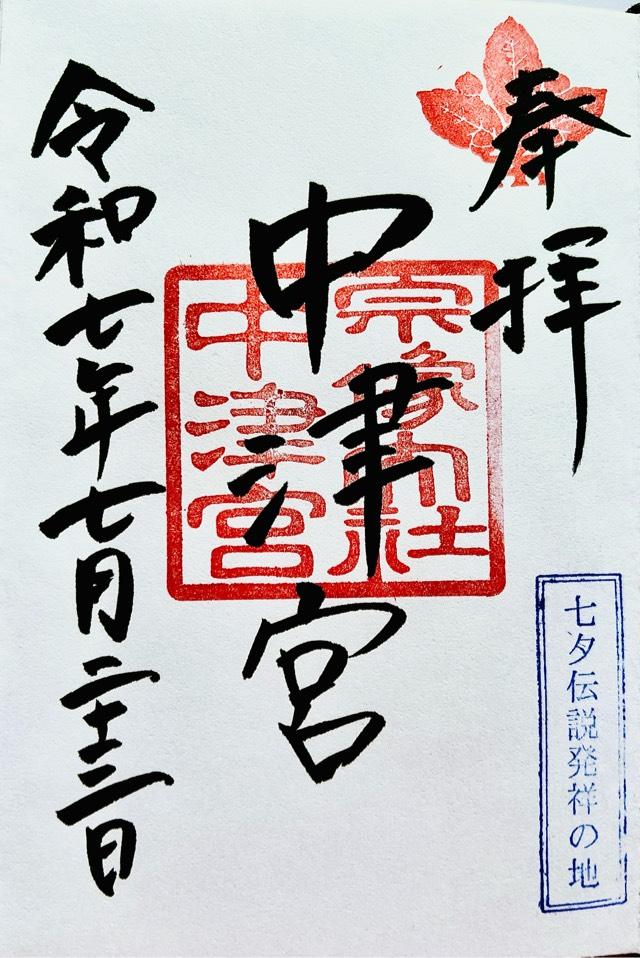 奉拝
宗像大社
中津宮
中津宮
令和七年七月二十三日
七夕伝説発祥の地